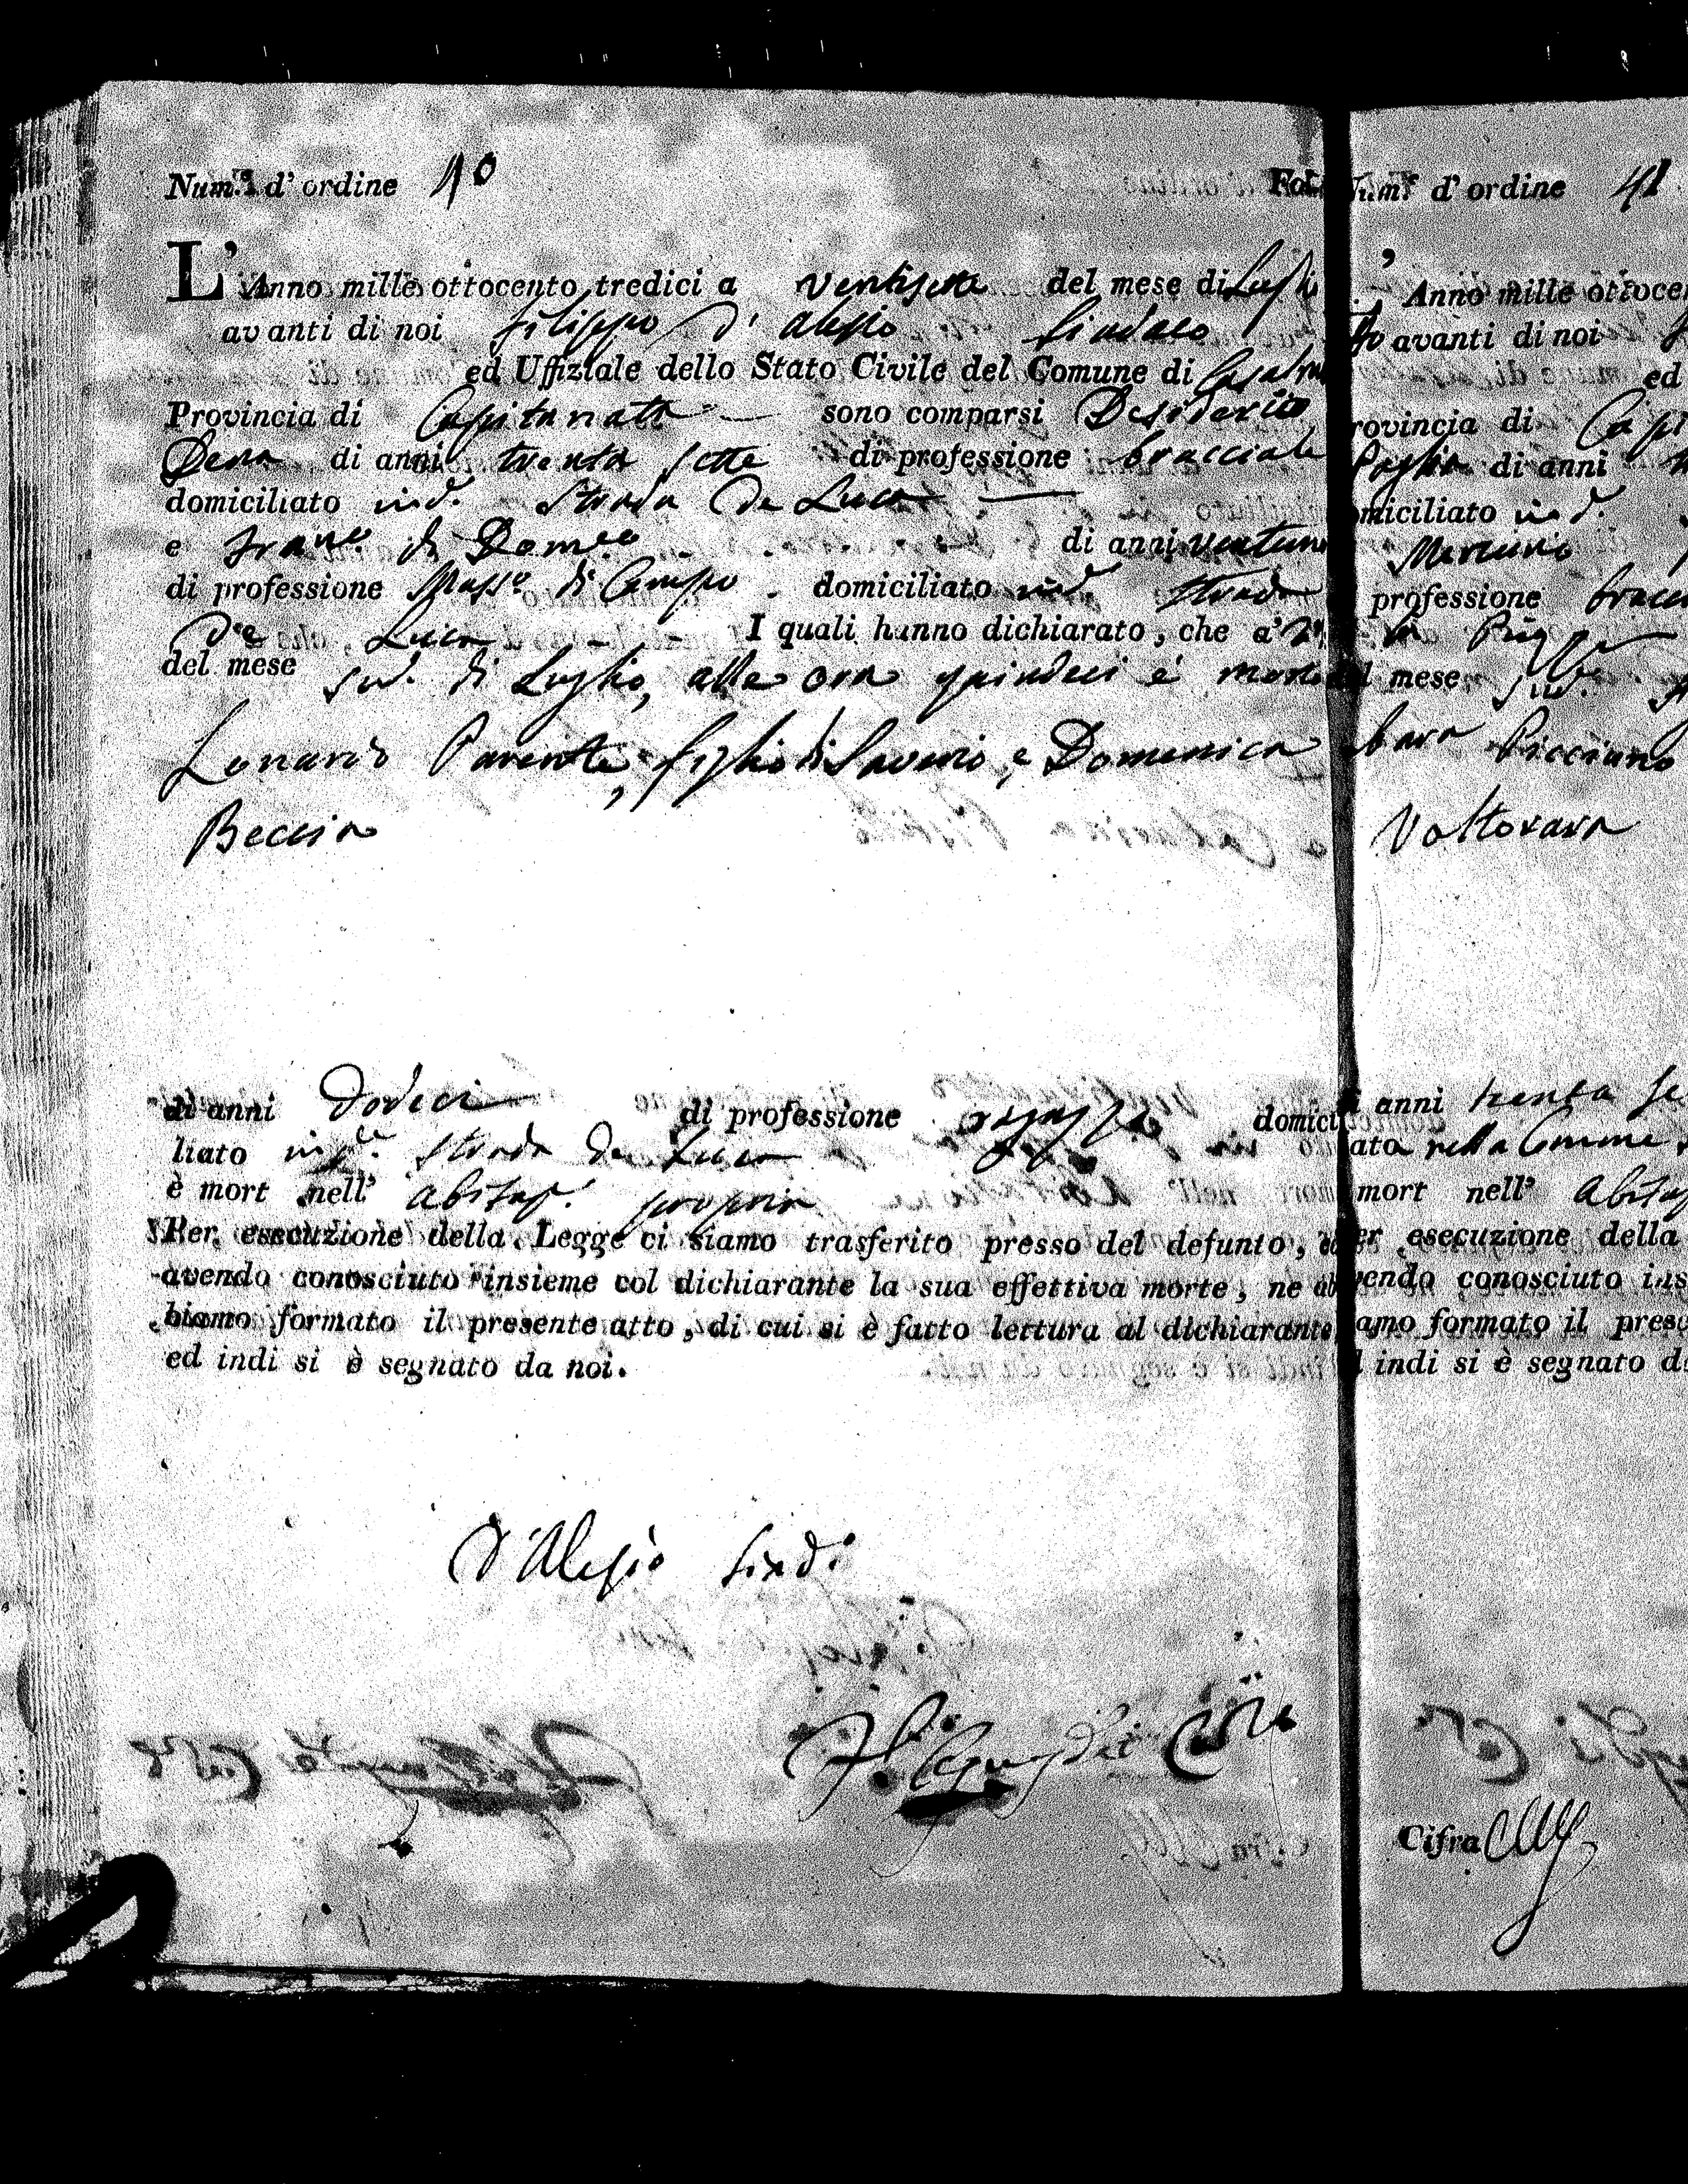 Num.e d' ordine 40
Fol.
L' Anno mille ottocento tredici a ventisette del mese di Luglio
avanti di noi Filippo D' alesio Sindaco
ed Uffiziale dello Stato Civile del Comune di Casaln
Provincia di Capitanata sono comparsi Desiderio
Dena di anni trenta sette di professione bracciale
domiciliato ind. Strada De Luca
e Franc.o di Domeo di anni ventun
di professione Mass.o di Campo domiciliato ind. Strada
De Luca I quali hanno dichiarato, che a'
del mese sud. di Luglio, alle ore quindeci è morto
Lonardo Parente, figlio di Saverio, e Domenica
Beccia
di anni Dodeci di professione ragazzo domici
liato in d. Strada De Luca
è mort nell' abitaz. propria
Per esecuzione della Legge ci siamo trasferito presso del defunto, ed
avendo conosciuto insieme col dichiarante la sua effettiva morte, ne ab
biamo formato il presente atto, di cui si è fatto lettura al dichiarante
ed indi si è segnato da noi.
D'Alesio Sind.
Num.e d' ordine 41
Anno mille ottocen
avanti di noi
ed
rovincia di Capi
di anni
omiciliato in d.
Mercurio
professione bracci
l mese sud.
bara Picciuno
Voltorara
i anni trenta se
ato nella Comune
mort nell' Abitaz
er esecuzione della
vendo conosciuto ins
amo formato il pres
d indi si è segnato d
Cifra